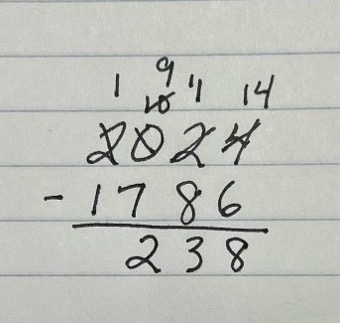 9
1 10 11 14
2024
- 1786
238